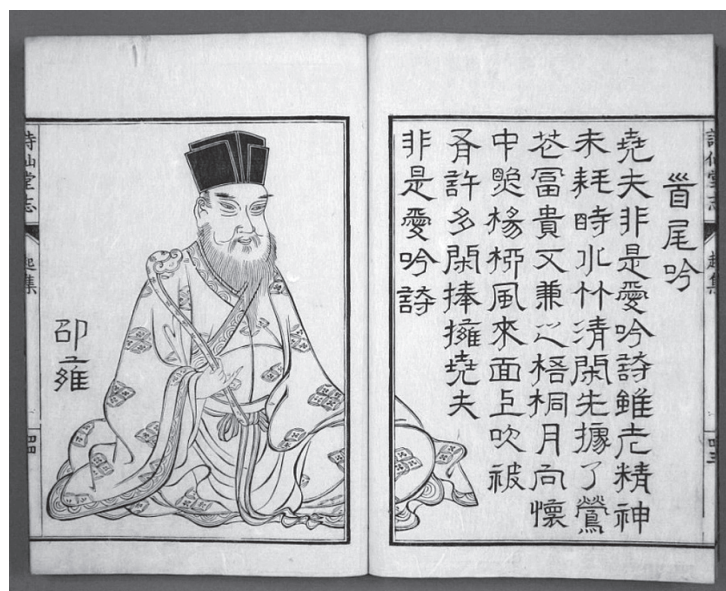 詩仙堂志
起集
四三
首尾吟
堯夫非是愛吟詩雖老精神
未耗時水竹清閑先據了鶯
花冨貴又兼之梧桐月向懷
中照楊栁風來面上吹被
有許多閑捧擁堯夫
非是愛吟詩
邵雍
詩仙堂志
起集
四四